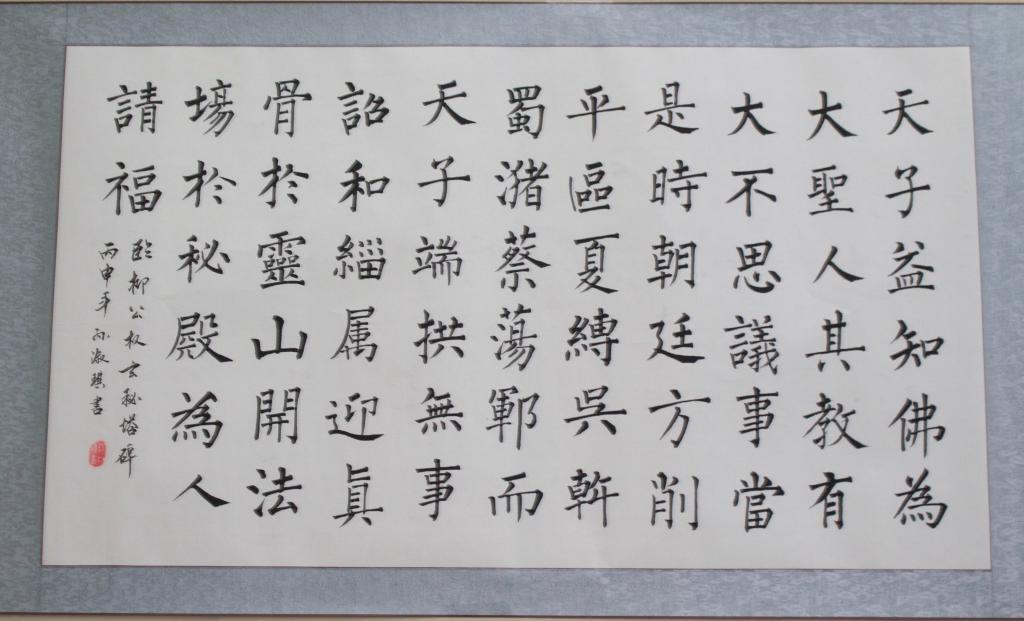 天子益知佛為
大聖人其教有
大不思議事當
是時朝廷方削
平區夏縛吳斡
蜀潴蔡蕩鄆而
天子端拱無事
詔和緇属迎眞
骨於靈山開法
場於秘殿為人
請福
臨柳公权玄秘塔碑
丙申年孙淑琪書